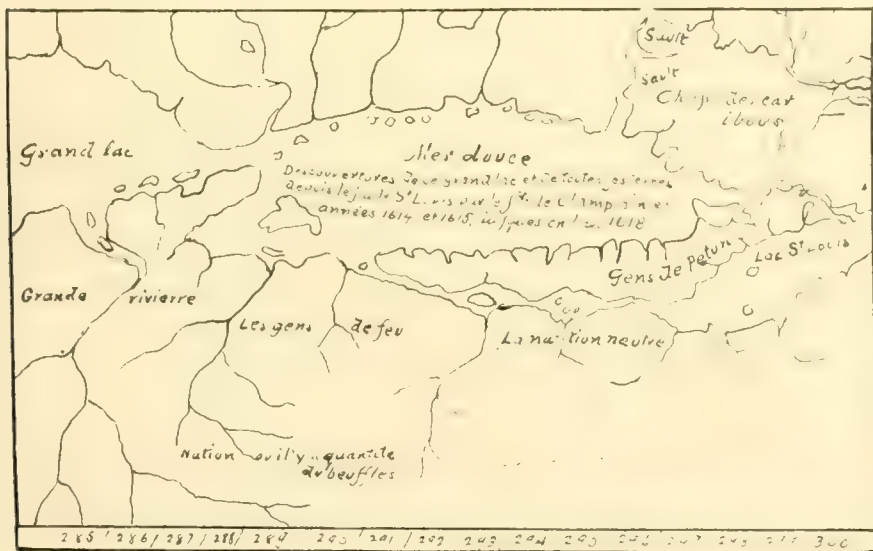 Sault
Sault
Chap de car
ibous
Grand lac
Mer douce
Descouvertures de ce grand lac et de toutes ses terres
depuis le St Louis par le Sr de Champlain es
années 1614 et 1615, iusques en 1618
Gens de petun
Lac St Louis
Grande rivierre
Les gens de feu
La nation neutre
Nation ou il y a quantite
de beuffles
285 286 287 288 289 290 291 292 293 294 295 296 297 298 300